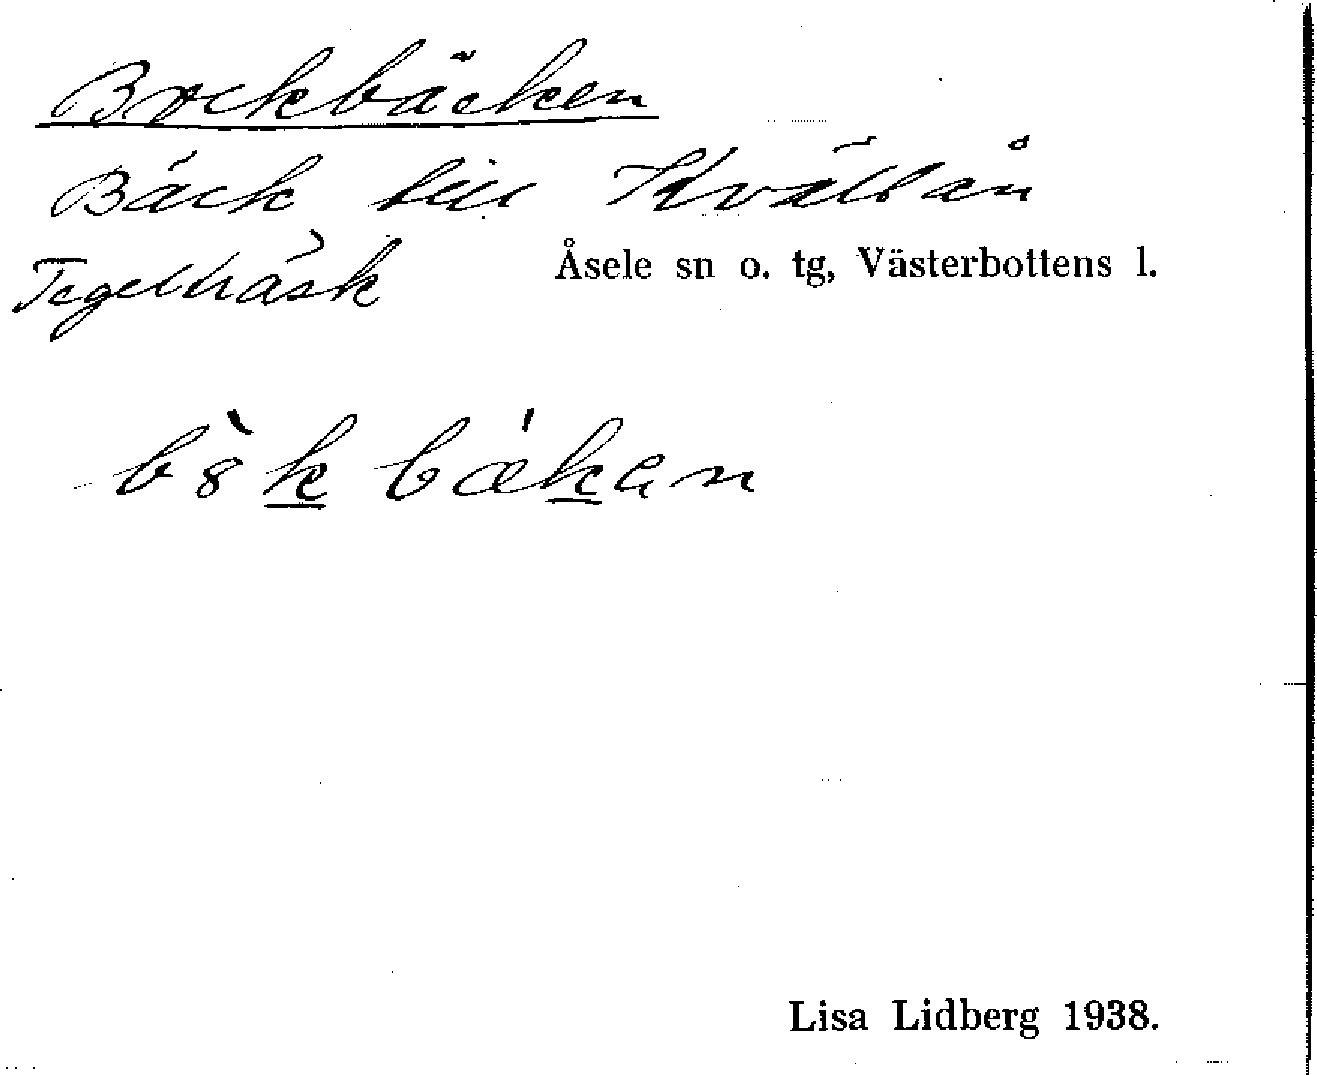 Bockbäcken
Bäck till Kvällån
Tegelträsk Åsele sn o. tg, Västerbottens l.
Lisa Lidberg 1938.